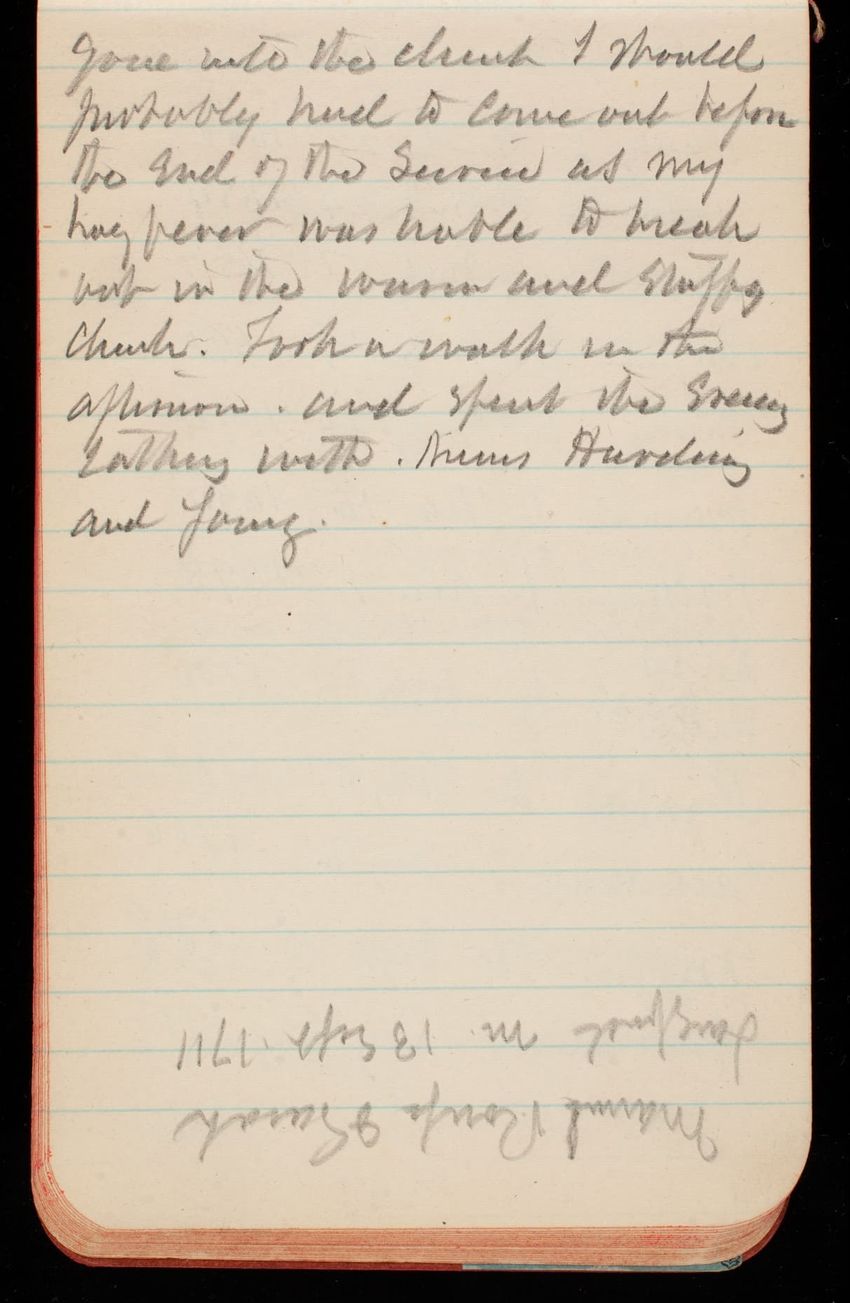 gone into the church I should
probably had to come out before
the End of the Service as my
hay fever was liable to break
out in the warm and Stuffy
Church. Took a walk in the
afternoon. and spent the Evening
talking with. Harding
and Young.
Samuel & Sarah
m. 13 Sept. 1711